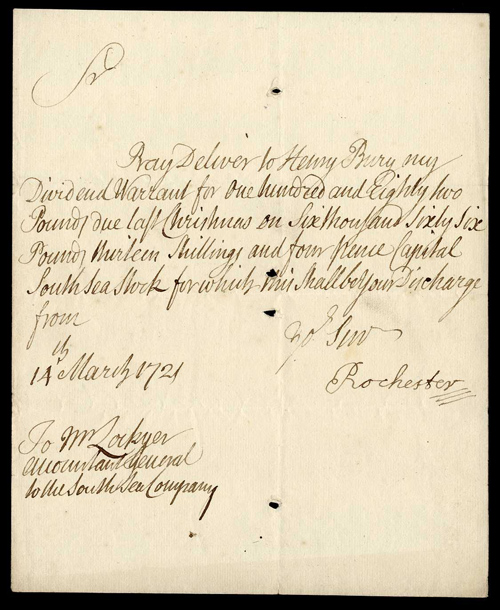 Sr
Pray Deliver to Henry Bury my
Dividend Warrant for One hundred and Eighty two
Pounds due last Christmas on Six thousand Sixty Six
Pounds thirteen Shillings and four Pence Capital
South Sea Stock for which this Shall be Your Discharge
from
Yor Serv
14th March 1721
Rochester
To Mr Lockyer
Accountant General
to the South Sea Company